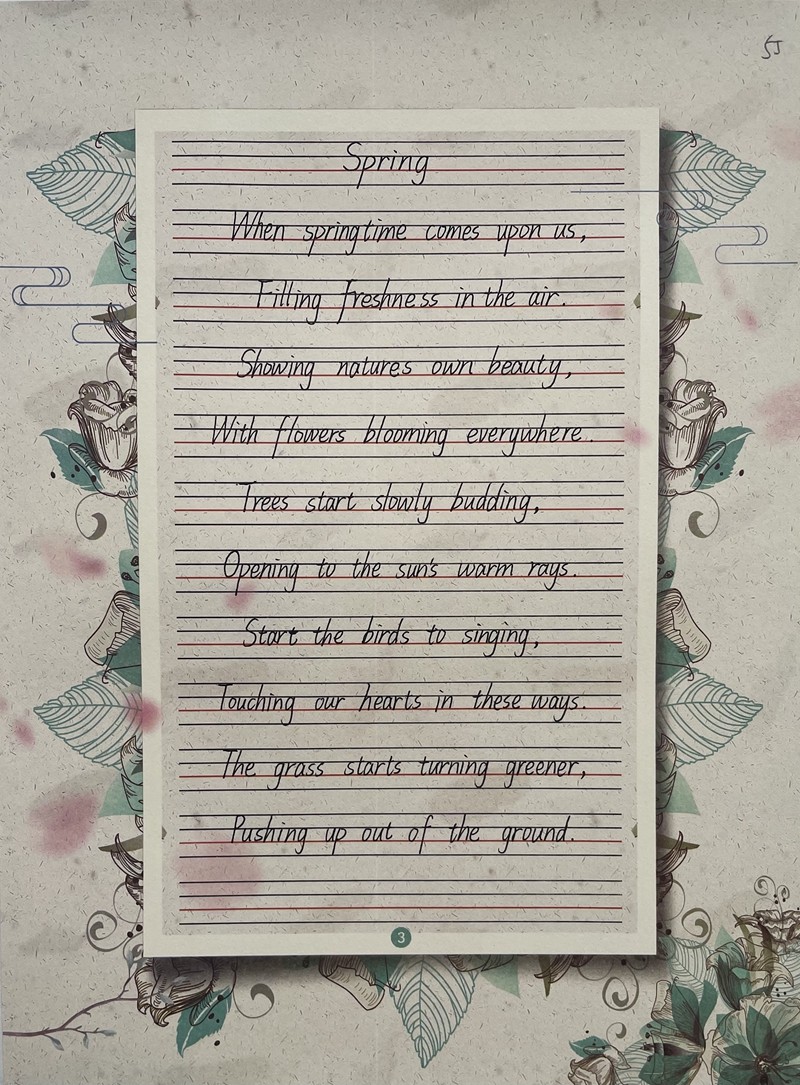 Spring
When springtime comes upon us,
Filling freshness in the air.
Showing natures own beauty,
With flowers blooming everywhere.
Trees start slowly budding,
Opening to the sun's warm rays.
Start the birds to singing,
Touching our hearts in these ways.
The grass starts turning greener,
Pushing up out of the ground.
3